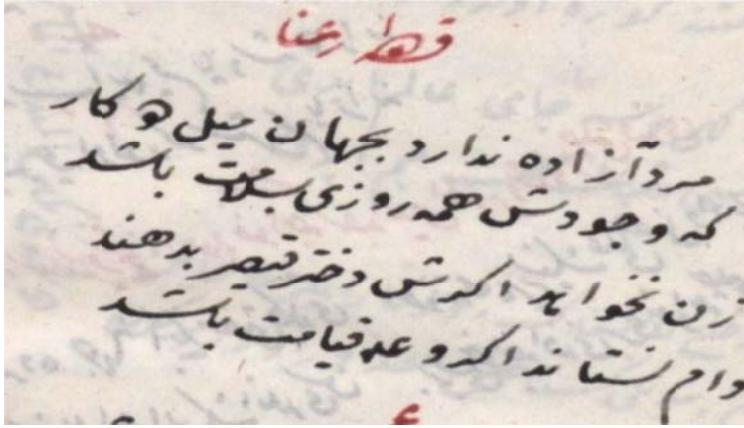 قطعه رعنا
مرد آزاده ندارد بجهان میل دو کار
که وجودش همه روزی بسلامت باشد
زن نخواهد اکرش دختر قیصر بدهند
وام نستاند اکر وعده قیامت باشد